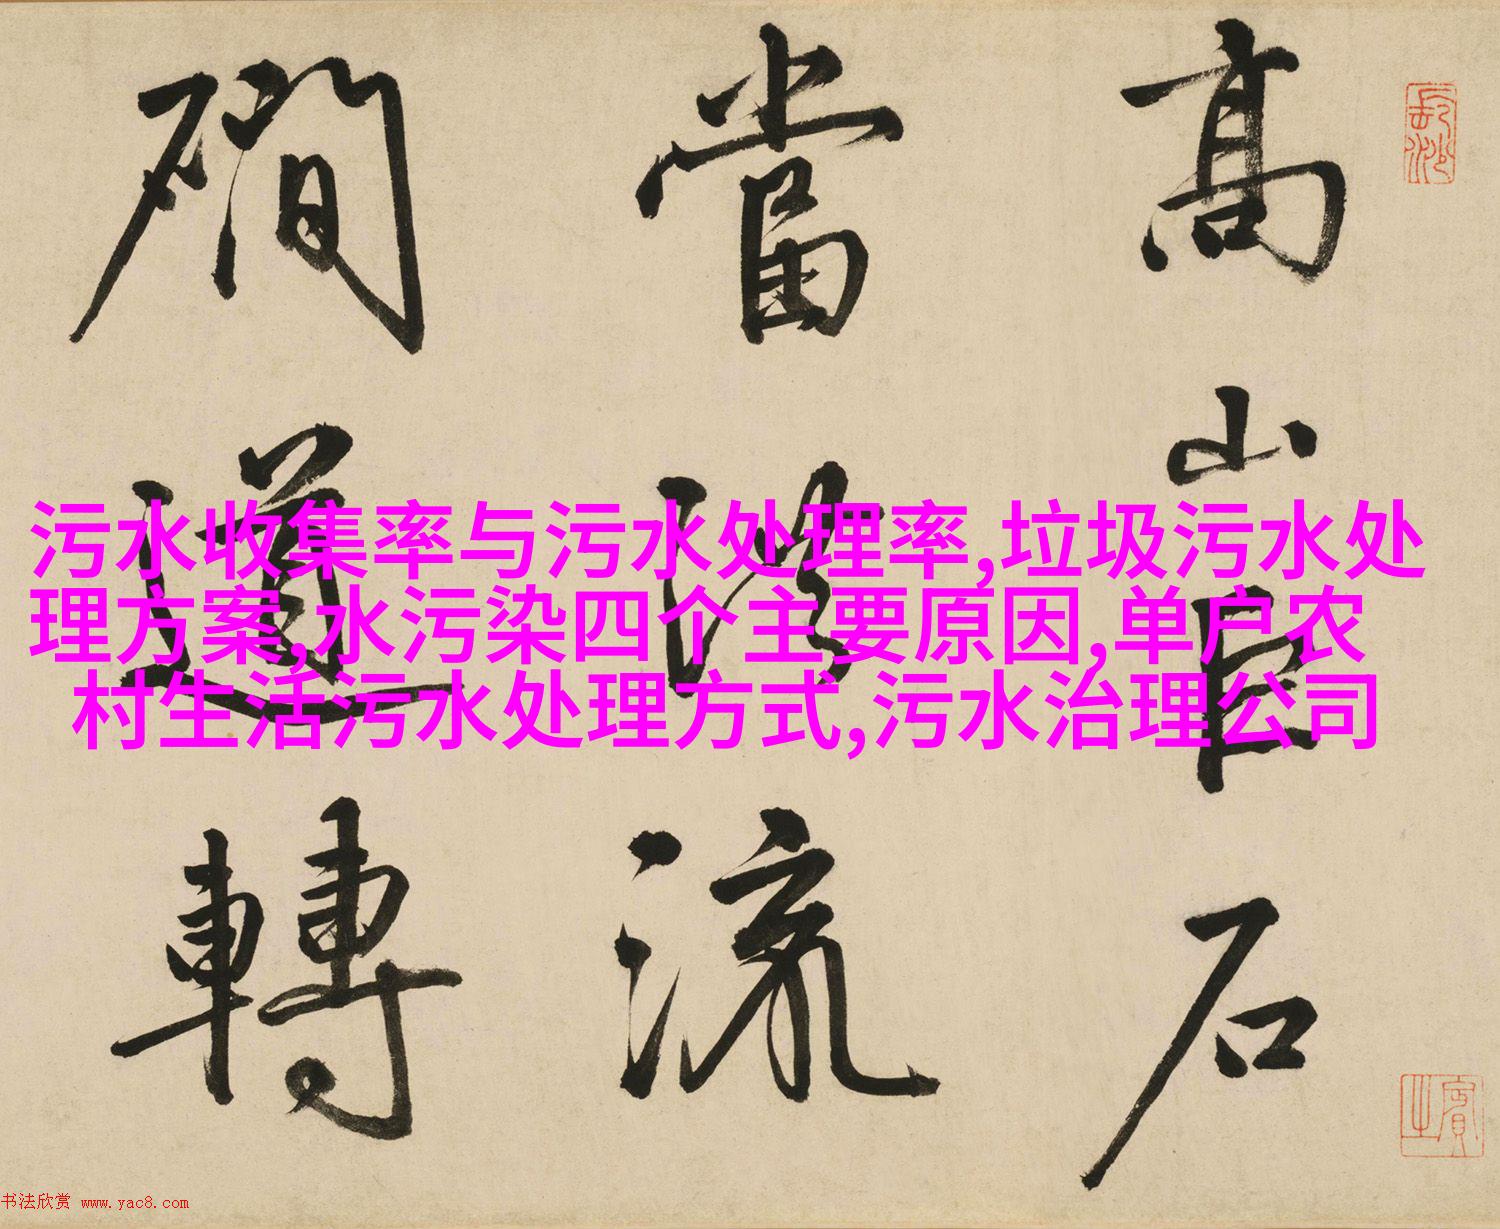 高山自石
當谿流
磵道轉
污水收集率与污水处理率,垃圾污水处
理方案,水污染四个主要原因,单户农
村生活污水处理方式,污水治理公司
书法欣赏 www.yac8.com